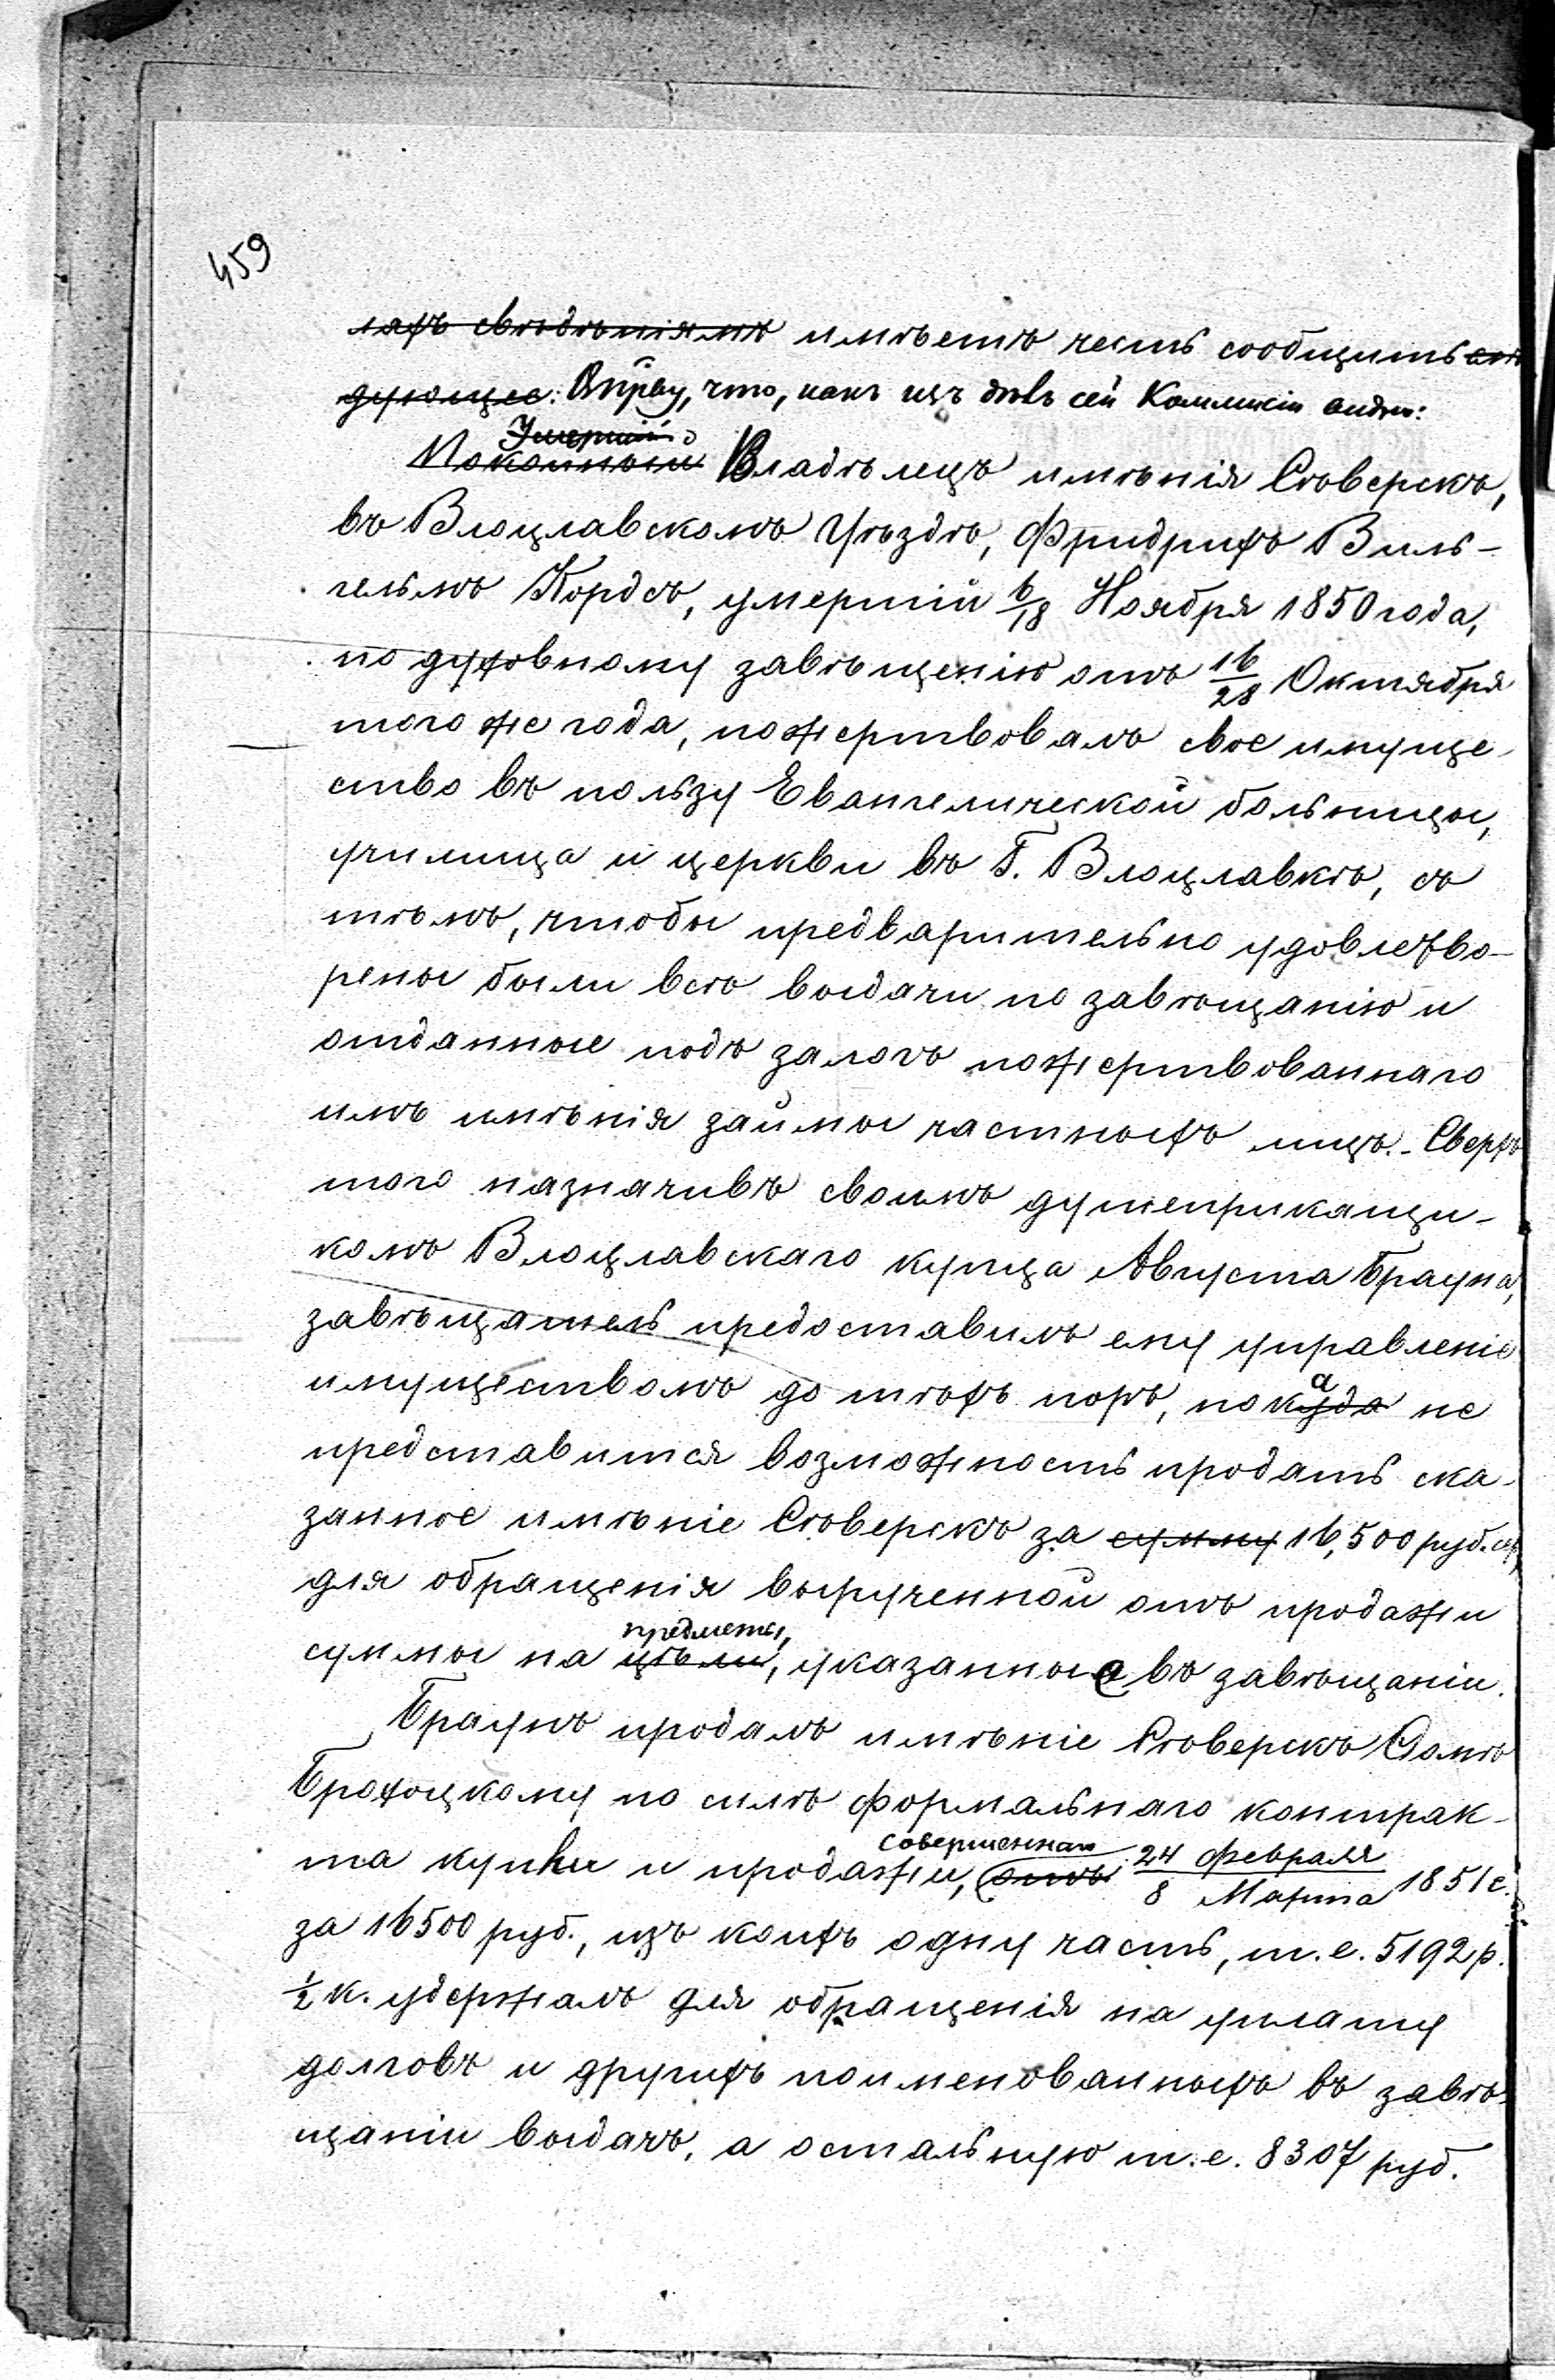 459
лахъ свѣдѣніямъ имѣетъ честь сообщить слѣ
дующее: Впр̃ву, что, какъ изъ дѣлъ сей Коммисіи видно:
Умершій
Покойный Владѣлецъ имѣнія Сѣверскъ,
въ Влоцлавскомъ Уѣздѣ, Фридрихъ Виль-
гельмъ Кордсъ, умершій 6/18 Ноября 1850 года,
по духовному завѣщенію отъ 16/28 Октября
того же года, пожертвовалъ свое имуще-
ство въ пользу Евангелической больницы,
училища и церкви въ Г. Влоцлавкѣ, съ
тѣмъ, чтобы предварительно удовлетво-
рены были всѣ выдачи по завѣщанію и
отданные подъ залогъ пожертвованнаго
имъ имѣнія займы частныхъ лицъ. - Сверхъ
того назначивъ своимъ душеприкащи-
комъ Влоцлавскаго купца Августа Брауна,
завѣщатель предоставилъ ему управленіе
имуществомъ до тѣхъ поръ, покуда а не
представится возможность продать ска-
занное имѣніе Сѣверскъ за сумму 16,500 руб. сер,
для обращенія вырученной отъ продажи
предметы,
суммы на цѣли, указанные въ завѣщаніи.
Браунъ продалъ имѣніе Сѣверскъ Ѳомѣ
Брохоцкому по силѣ формальнаго контрак-
совершеннаго
та купли и продажи, отъ 24 Февраля / 8 Марта 1851 г.
за 16500 руб., изъ коихъ одну часть, т. е. 5192 р.
½ к. удержалъ для обращенія на уплату
долговъ и другихъ поименованныхъ въ завѣ-
щаніи выдачъ, а остальную т. е. 8307 руб.